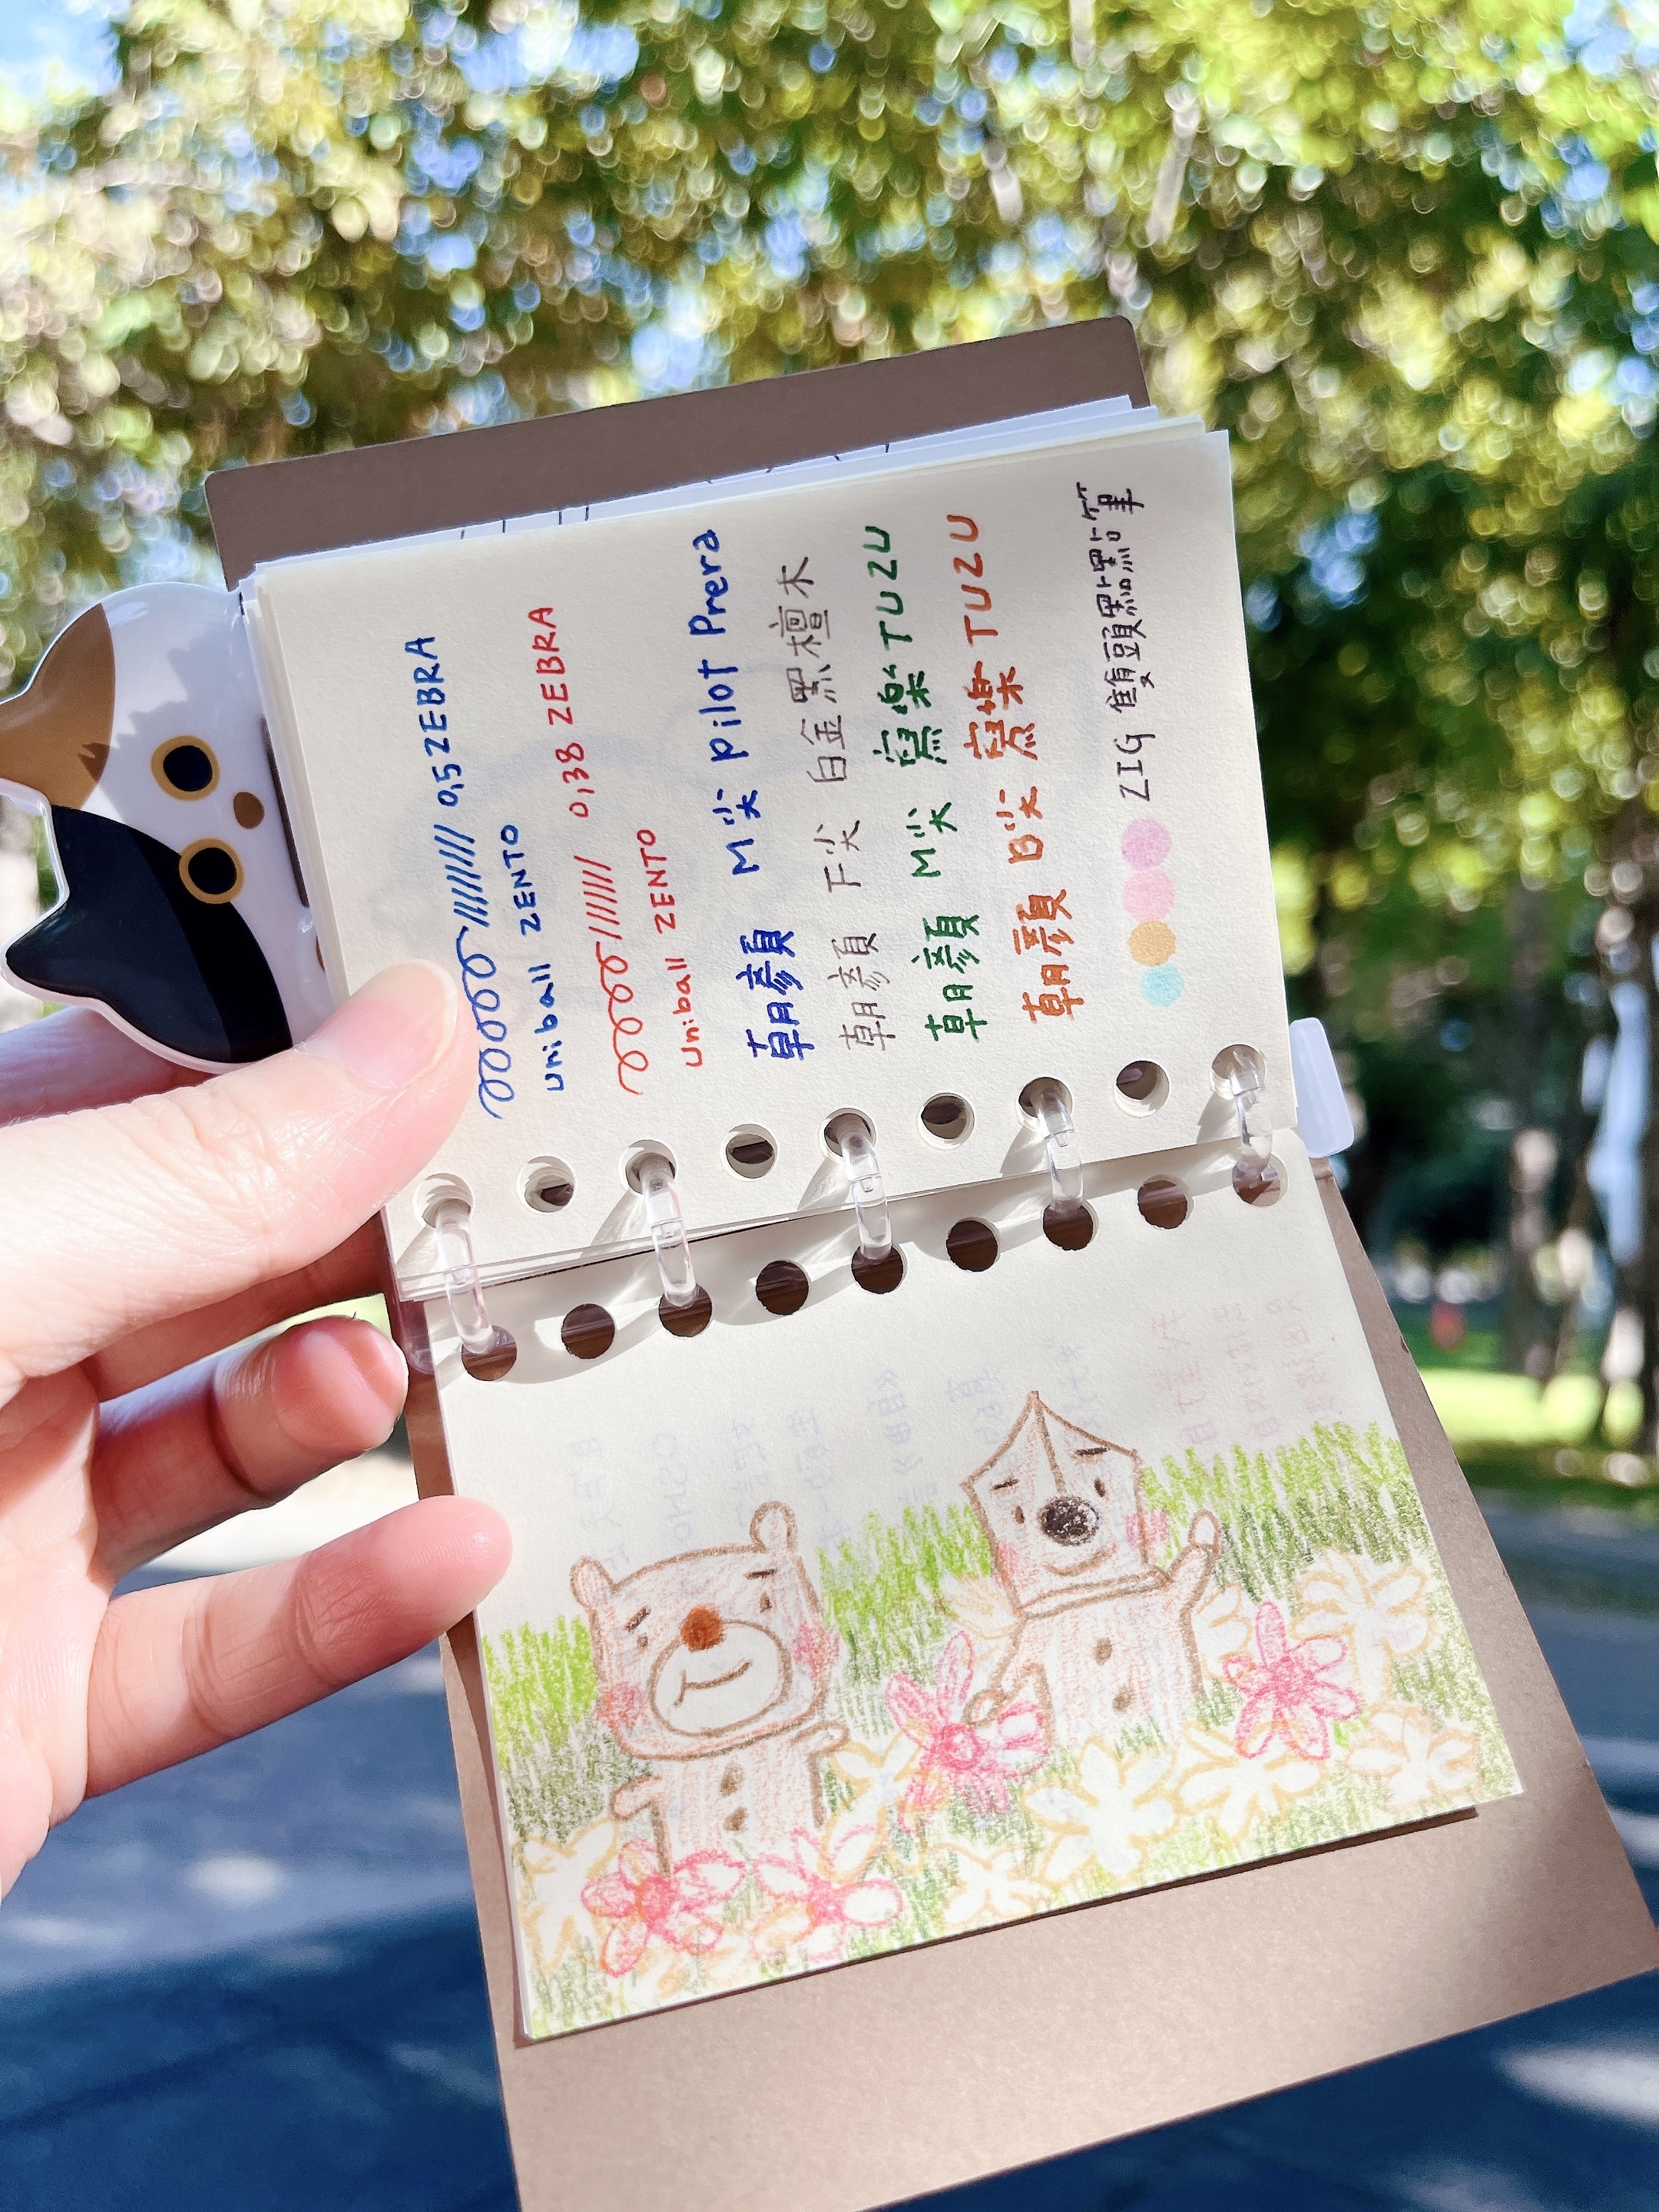 0,5 ZEBRA
uniball ZENTO
0,38 ZEBRA
uniball ZENTO
朝顏 M尖 pilot Prera
朝顏 F尖 白金黑檀木
朝顏 M尖 寫樂 TUZU
朝顏 B尖 寫樂 TUZU
ZIG 雙頭點點筆